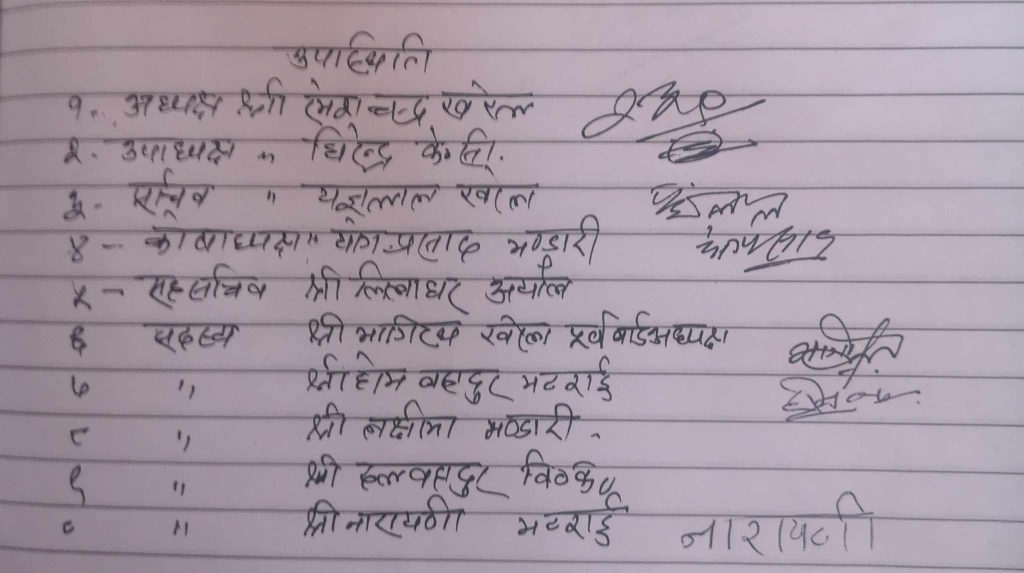 उपस्थिति
१. अध्यक्ष श्री रमेश चन्द्र खरेल
२. उपाध्यक्ष " धिरेन्द्र के.सि.
३. सचिव " यज्ञलाल खरेल
४ - कोषाध्यक्ष " योग प्रसाद भण्डारी
५ - सहसचिव श्री लिलाधर अर्याल
६ सदस्य श्री भागिरथ खरेल पूर्व वार्ड अध्यक्ष
७ " श्री होम बहादुर भटराई
८ " श्री लक्ष्मि भण्डारी .
९ " श्री दलबहादुर वि०क०
० " श्री नारायणी भटराई नारायणी